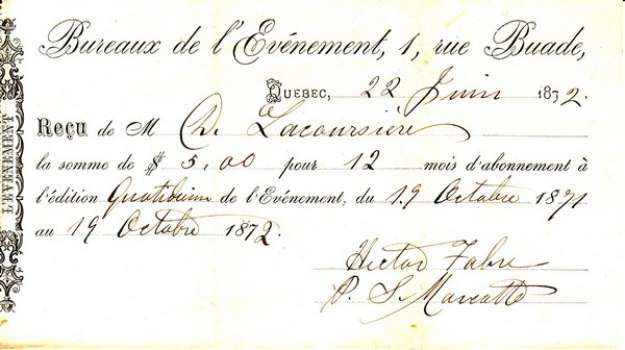 Bureaux de l'Evénement, 1, rue Buade,
QUEBEC, 22 Juin 1872.
Reçu de M D. Lacoursière
la somme de $ 5,00 pour 12 mois d'abonnement à
l'édition Quotidienne de l'Evénement, du 19 Octobre 1871
au 19 Octobre 1872.
Hector Fabre
P. S. Marcotte
L'EVENEMENT